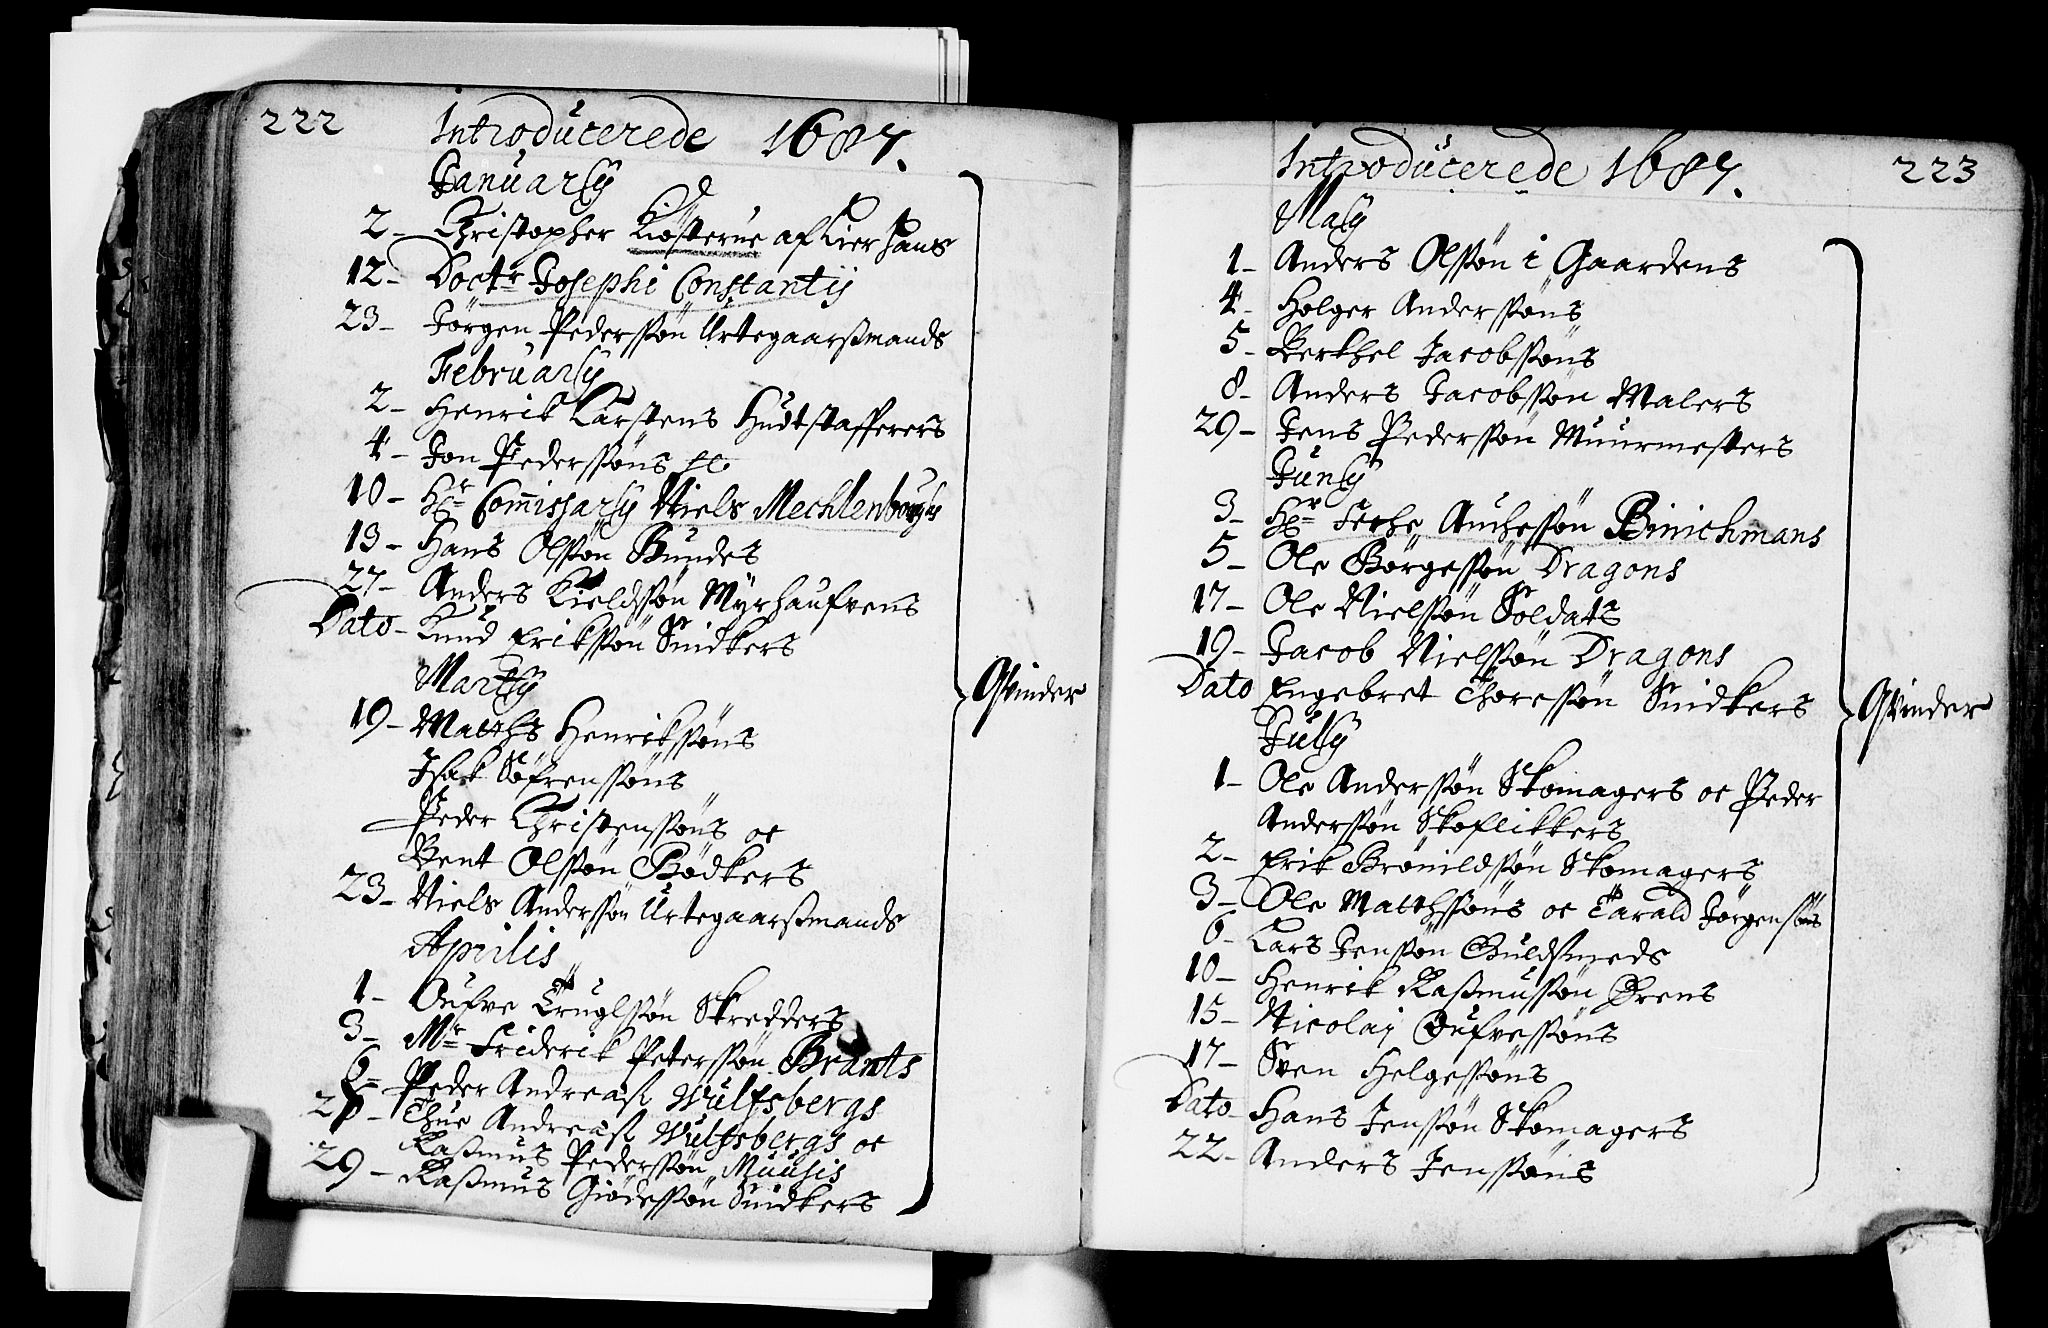 222
Introducerede 1687.
Januarij
2 - Christopher Kiøsterue af Kierhans
12 - Doctr Josephi Constantij
23 - Jörgen Pederssön Urtegaarßmands
Februarij
2 - Henrik Karstens Hudtstafferers
4 - Jon Pederssöns
10 - Hr Commissarij Niels Mechlenborgs
13 - Hans Olssön Bundes
27 - Anders Kieldssön
Dato - Knud Erikssön Snidkers
Martij
19 - Matths Henrikssöns
Isak Söfrenssöns
Peder Christenssöns oc
Bent Olssön Bödkers
23 - Niels Anderssön Urtegaarßmands
Aprilis
1 - Oufve Truglssön Skredders
3 - Mr Friderik Peterssön Brants
6 - Peder Andreasl Wulfsbergs
Thue Andreasl Wulfsbergs oc
Rasmus Pederssön Muusis
29 - Rasmus Giödessön Snidkers
Qvinder
Introducerede 1687.
223
Maij
1 - Anders Olssön i Gaardens
4 - Holger Anderssöns
5 - Berthel Jacobssöns
8 - Anders Jacobssön Malers
29 - Jens Pederssön Muurmesters
Junij
3 - Hr Binichmans
5 - Ole Börgessön Dragons
17 - Ole Nielssön Soldats
19 - Jacob Nielssön Dragons
Dato Engebret Thoressön Snidkers
Julij
1 - Ole Anderssön Skomagers oc Peder
Anderssön Skoflikkers
2 - Erik Brönildssön Skomagers
3 - Ole Matthssöns oc Tarald Jörgenssöns
6 - Lars Jenssön Guldsmeds
10 - Henrik Rasmussön
15 - Nicolaj Oufvessöns
17 - Sven Helgessöns
Dato - Hans Jenssön Skomagers
22 - Anders Jenssöns
Qvinder